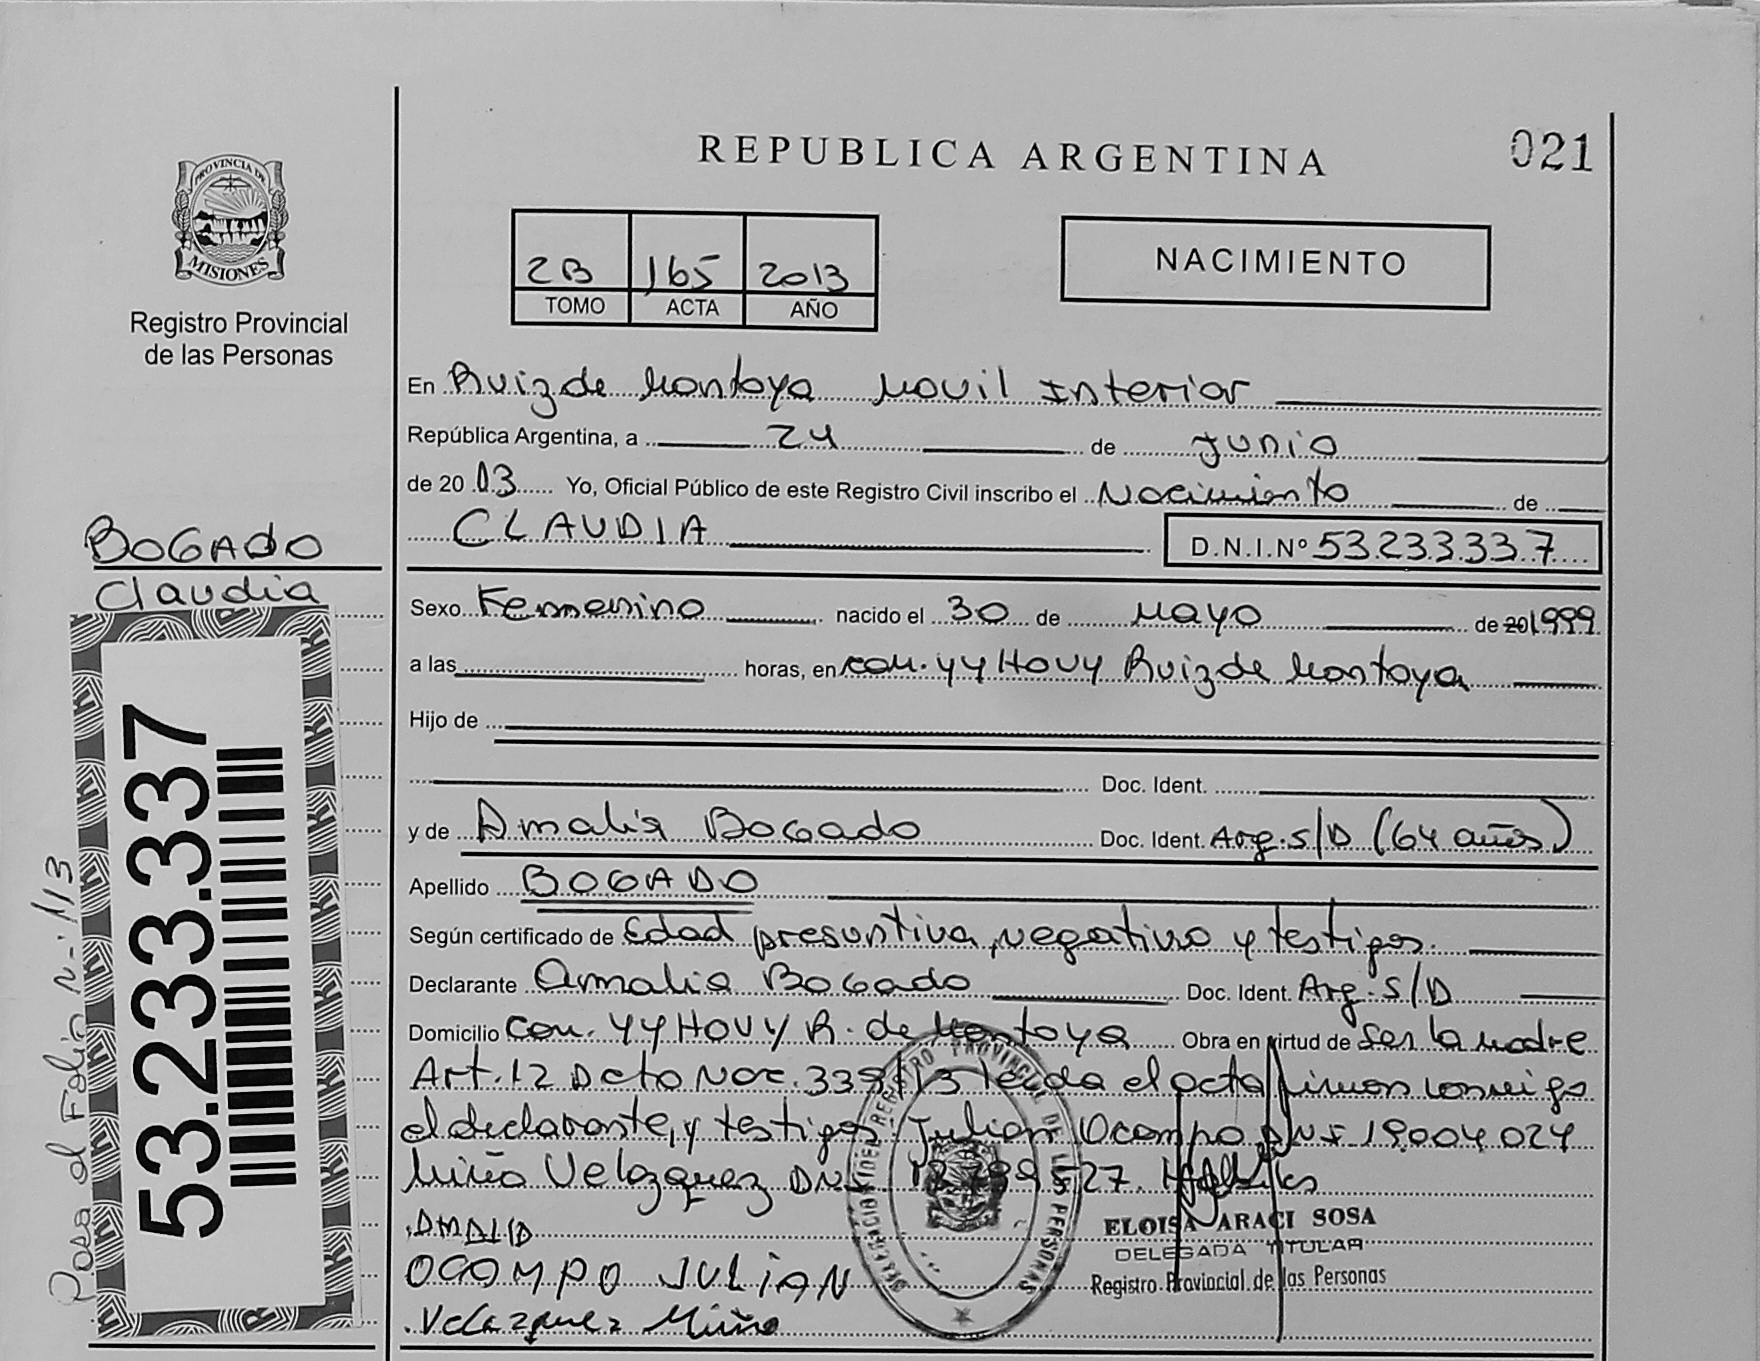 REPUBLICA ARGENTINA
021
PROVINCIA DE
MISIONES
Registro Provincial
de las Personas
2B 165 2013
TOMO ACTA AÑO
NACIMIENTO
En Ruiz de Montoya Movil Interior
República Argentina, a 24 de Junio
de 2013 Yo, Oficial Público de este Registro Civil inscribo el Nacimiento de
CLAUDIA D.N.I.Nº 53.233.337
BOGADO
Claudia
Sexo Femenino nacido el 30 de Mayo de 20 1999
a las horas, en com. YY HOVY Ruiz de Montoya
Hijo de
Doc. Ident.
y de Amalia Bogado Doc. Ident. Arg. S/D (64 años)
Apellido BOGADO
Según certificado de Edad presuntiva, negativo y testigos.
Declarante Amalia Bogado Doc. Ident. Arg. S/D
Domicilio com. YY HOVY R. de Montoya Obra en virtud de ser la madre
Art. 12 Dcto Nac. 339/13 leida el acta firman conmigo
el declarante, y testigos: Julian Ocampo DNI 19.004.024
Miño Velazquez DNI
AMALIA
OCAMPO JULIAN
Velazquez Miño
ELOISA ARACI SOSA
DELEGADA TITULAR
Registro Provincial de las Personas
REGISTRO PROVINCIAL DE LAS PERSONAS
53.233.337
Pasa al Folio Nº: 113